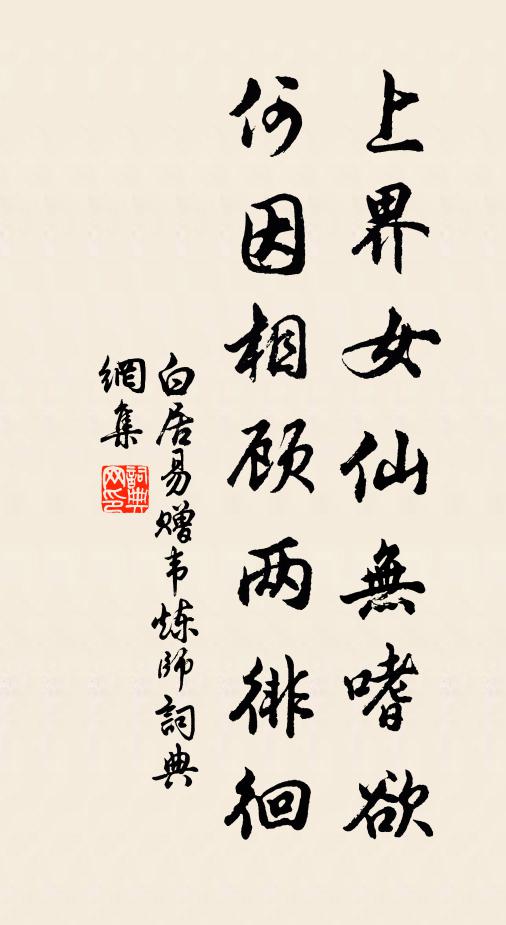 上界女仙無嗜欲
何因相顾两徘徊
白居易赠韦炼師詞典
網集
詞典
网印